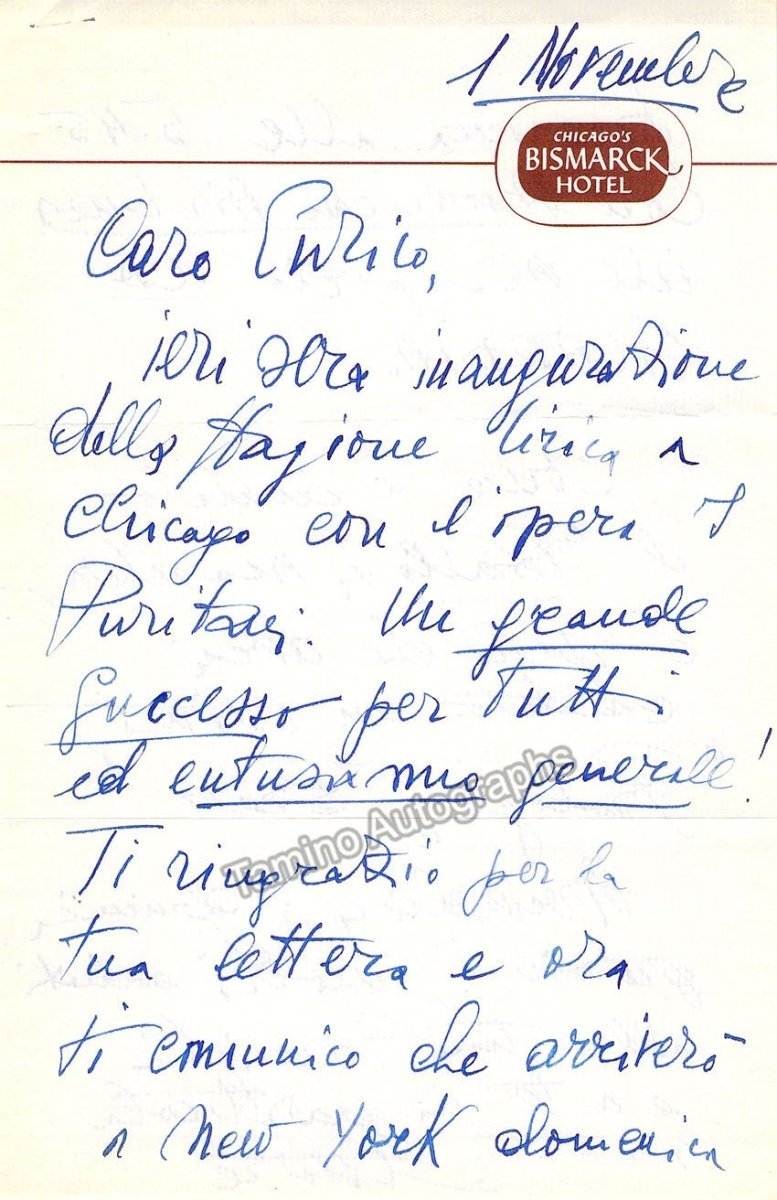 1 Novembre
CHICAGO'S
BISMARCK
HOTEL
Caro Enrico,
ieri sera inaugurazione
della stagione lirica a
Chicago con l'opera I
Puritani. Un grande
successo per tutti
ed entusiasmo generale!
Tamino Autographs
Ti ringrazio per la
tua lettera e ora
ti comunico che arriverò
a New York domenica